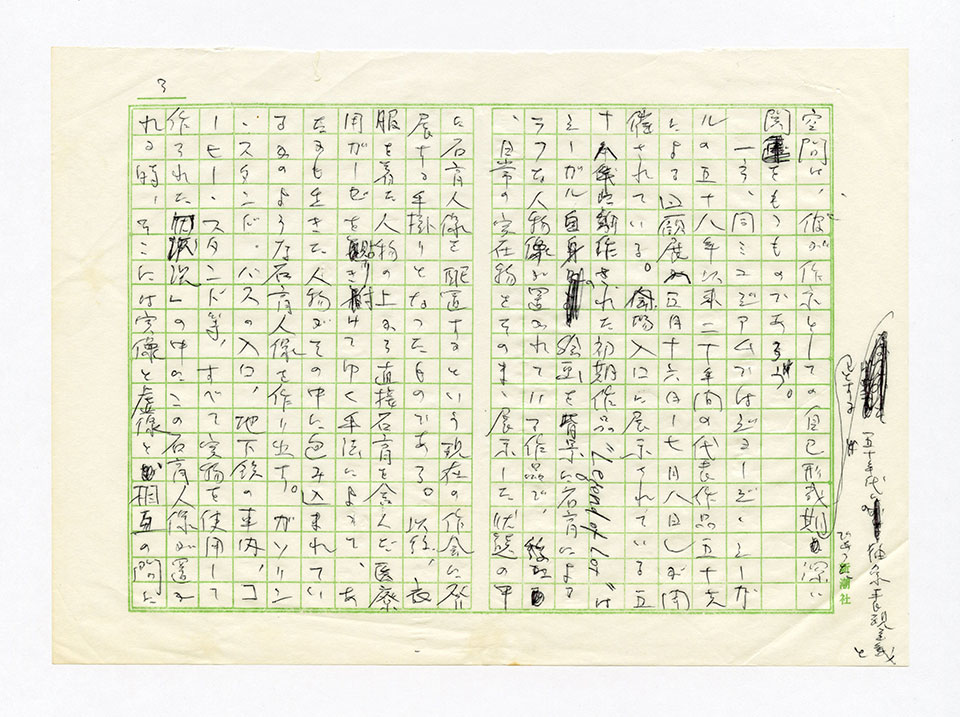 3
五十年代の抽象表現主義と
空間は、彼が作家としての自己形成期の深い
関をもつものであろう。
一方、同ミュゼアムではジョージ・シーガ
ルの五十八年以来二十年間の代表作品五十六
による回顧展が五月十六日ー七月八日まで開
催されている。会場入口に展示されている五
十八年に制作された初期作品"Legend of Lot"は
シーガル自身の絵画を背景に石膏による
ラフな人物像が置かれている作品で、
、日常の実在物をそのまゝ展示した状態の中
に石膏人像を配置するという現在の作品に発
展する手掛りとなったものである。以後、衣
服を着た人物の上から直接石膏を含んだ医療
用ガーゼを貼り付けてゆく手法によって、あ
たかも生きた人物がその中に包み込まれてい
るかのような石膏人像を作り出す。ガソリン
・スタンド、バスの入口、地下鉄の車内、コ
ーヒー・スタンド等、すべて実物を使用して
作られた「状況」の中にこの石膏人像が置か
れる時、そこには実像と虚像と相互の間に